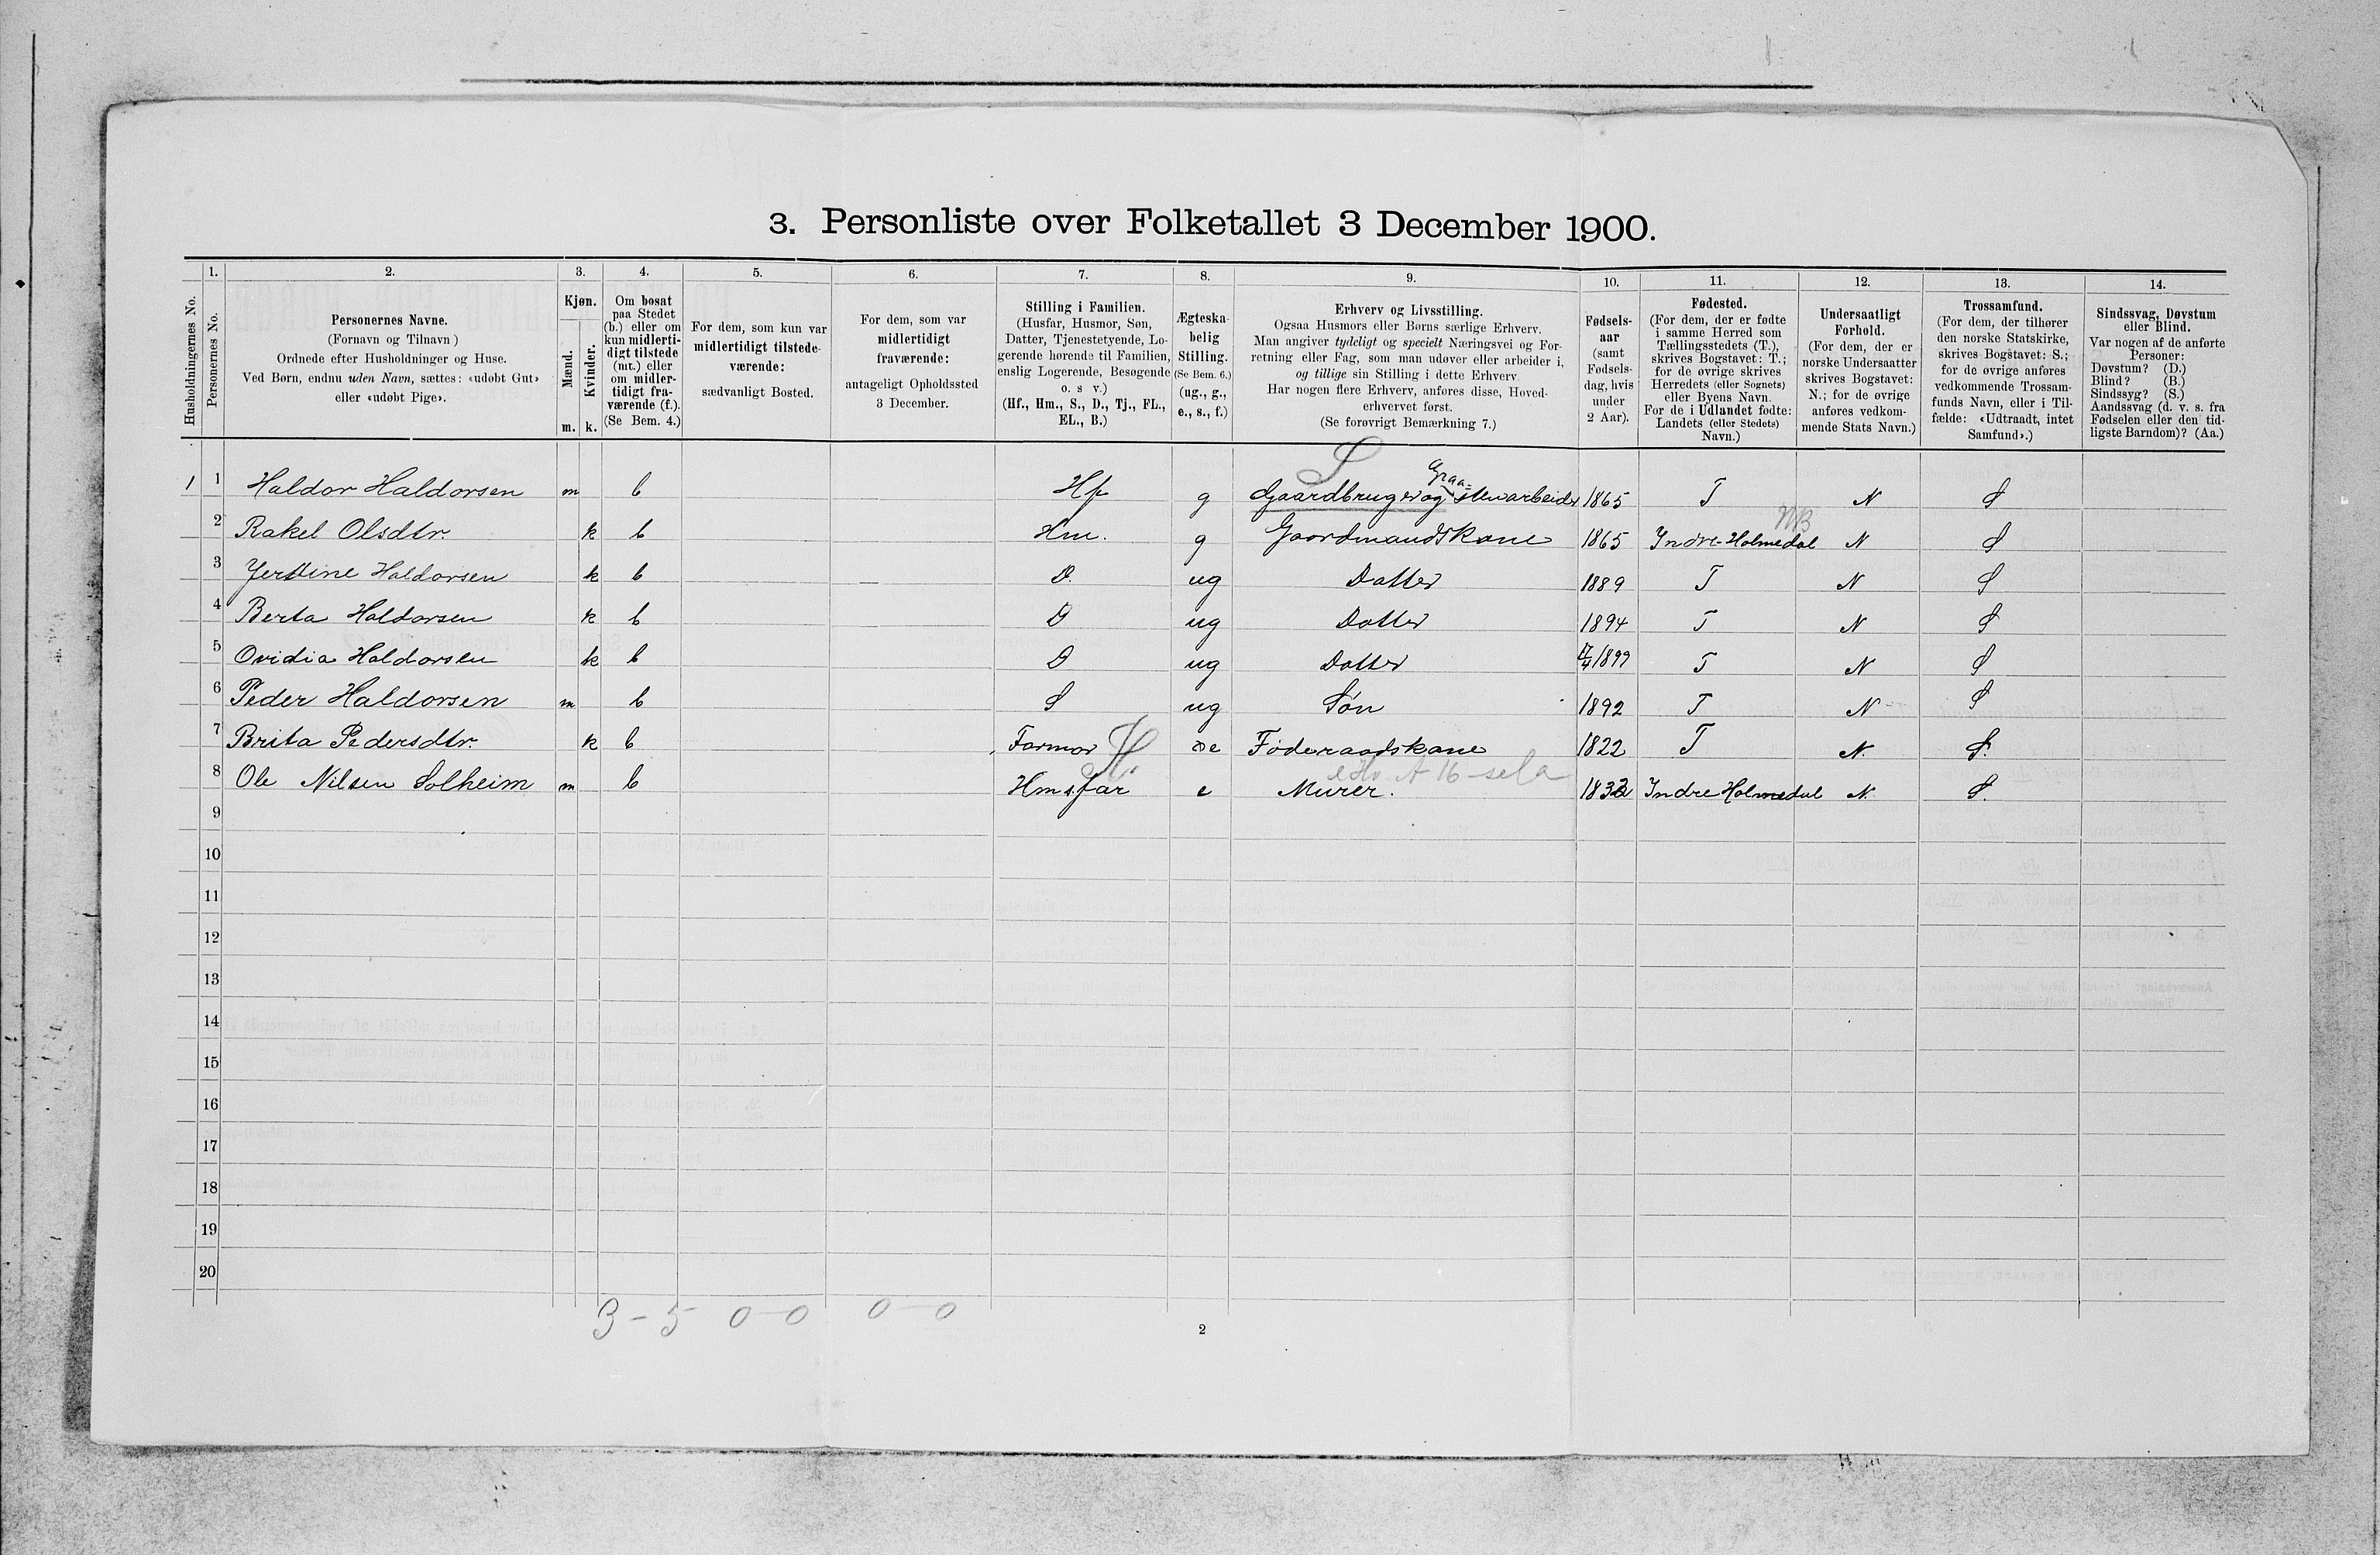 3. Personliste over Folketallet 3 December 1900.
1. 2. 3. 4. 5. 6. 7. 8. 9. 10. 11. 12. 13. 14.
Husholdningernes No.
Personernes No.
Personernes Navne.
(Fornavn og Tilnavn)
Ordnede efter Husholdninger og Huse.
Ved Børn, endnu uden Navn, sættes: «udøbt Gut»
eller «udøbt Pige».
Kjøn.
Mænd.
Kvinder.
m. k.
Om bosat
paa Stedet
(b.) eller om
kun midlerti-
digt tilstede
(mt.) eller
om midler-
tidigt fra-
værende (f.).
(Se Bem. 4.)
For dem, som kun var
midlertidigt tilstede-
værende:
sædvanligt Bosted.
For dem, som var
midlertidigt
fraværende:
antageligt Opholdssted
3 December.
Stilling i Familien.
(Husfar, Husmor, Søn,
Datter, Tjenestetyende, Lo-
gerende hørende til Familien,
enslig Logerende, Besøgende
o. s v.)
(Hf., Hm., S., D., Tj., FL.,
EL., B.)
Ægteska-
belig
Stilling.
(Se Bem. 6.)
(ug., g.,
e., s., f.)
Erhverv og Livsstilling.
Ogsaa Husmors eller Børns særlige Erhverv.
Man angiver tydeligt og specielt Næringsvei og For-
retning eller Fag, som man udøver eller arbeider i,
og tillige sin Stilling i dette Erhverv.
Har nogen flere Erhverv, anføres disse, Hoved-
erhvervet først.
(Se forøvrigt Bemærkning 7.)
Fødsels-
aar
(samt
Fødsels-
dag, hvis
under
2 Aar).
Fødested.
(For dem, der er fødte
i samme Herred som
Tællingsstedets (T.),
skrives Bogstavet: T.;
for de øvrige skrives
Herredets (eller Sognets)
eller Byens Navn.
For de i Udlandet fødte:
Landets (eller Stedets)
Navn.)
Undersaatligt
Forhold.
(For dem, der er
norske Undersaatter
skrives Bogstavet:
N.; for de øvrige
anføres vedkom-
mende Stats Navn.)
Trossamfund.
(For dem, der tilhører
den norske Statskirke,
skrives Bogstavet: S.;
for de øvrige anføres
vedkommende Trossam-
funds Navn, eller i Til-
fælde: «Udtraadt, intet
Samfund».)
Sindssvag, Døvstum
eller Blind.
Var nogen af de anførte
Personer:
Døvstum? (D.)
Blind? (B.)
Sindssyg? (S.)
Aandssvag (d. v. s. fra
Fødselen eller den tid-
ligste Barndom)? (Aa.)
S
Graa=
1 1 Haldor Haldorsen m b Hf g Gaardbruger og stenarbeider 1865 T N S
NB
2 Rakel Olsdtr. k b Hm. g Gaardmandskone 1865 Indre Holmedal N S
3 Jertine Haldorsen k b D. ug Datter 1889 T N S
4 Berta Haldorsen k b D ug Datter 1894 T N S
5 Ovidia Haldorsen k b D ug Datter 1899 T N S
6 Peder Haldorsen m b S ug Søn 1892 T N S
7 Brita Pedersdtr. k b Farmor e Føderaadskone 1822 T N. S.
8 Ole Nilsen Solheim m b Hms. far e Murer. 1832 Indre Holmedal N. S.
9
10
11
12
13
14
15
16
17
18
19
20
3 - 5 0 - 0 0 - 0
2